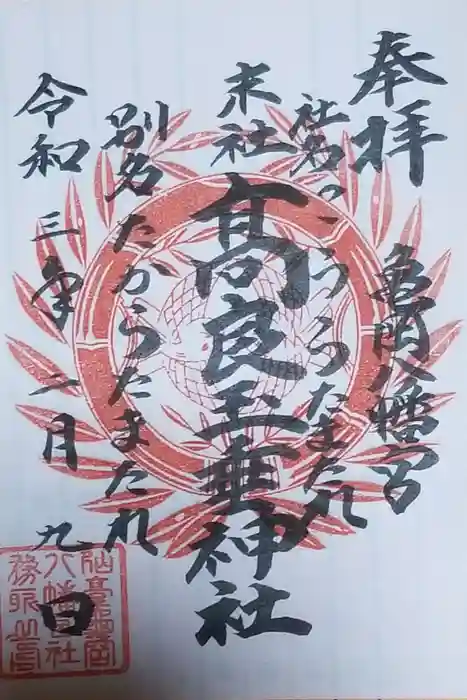 奉拝
亀岡八幡宮
社名は、こうらたまたれ
末社
髙良玉垂神社
別名たからたまたれ
令和三年二月九日
八幡宮社
務所之印